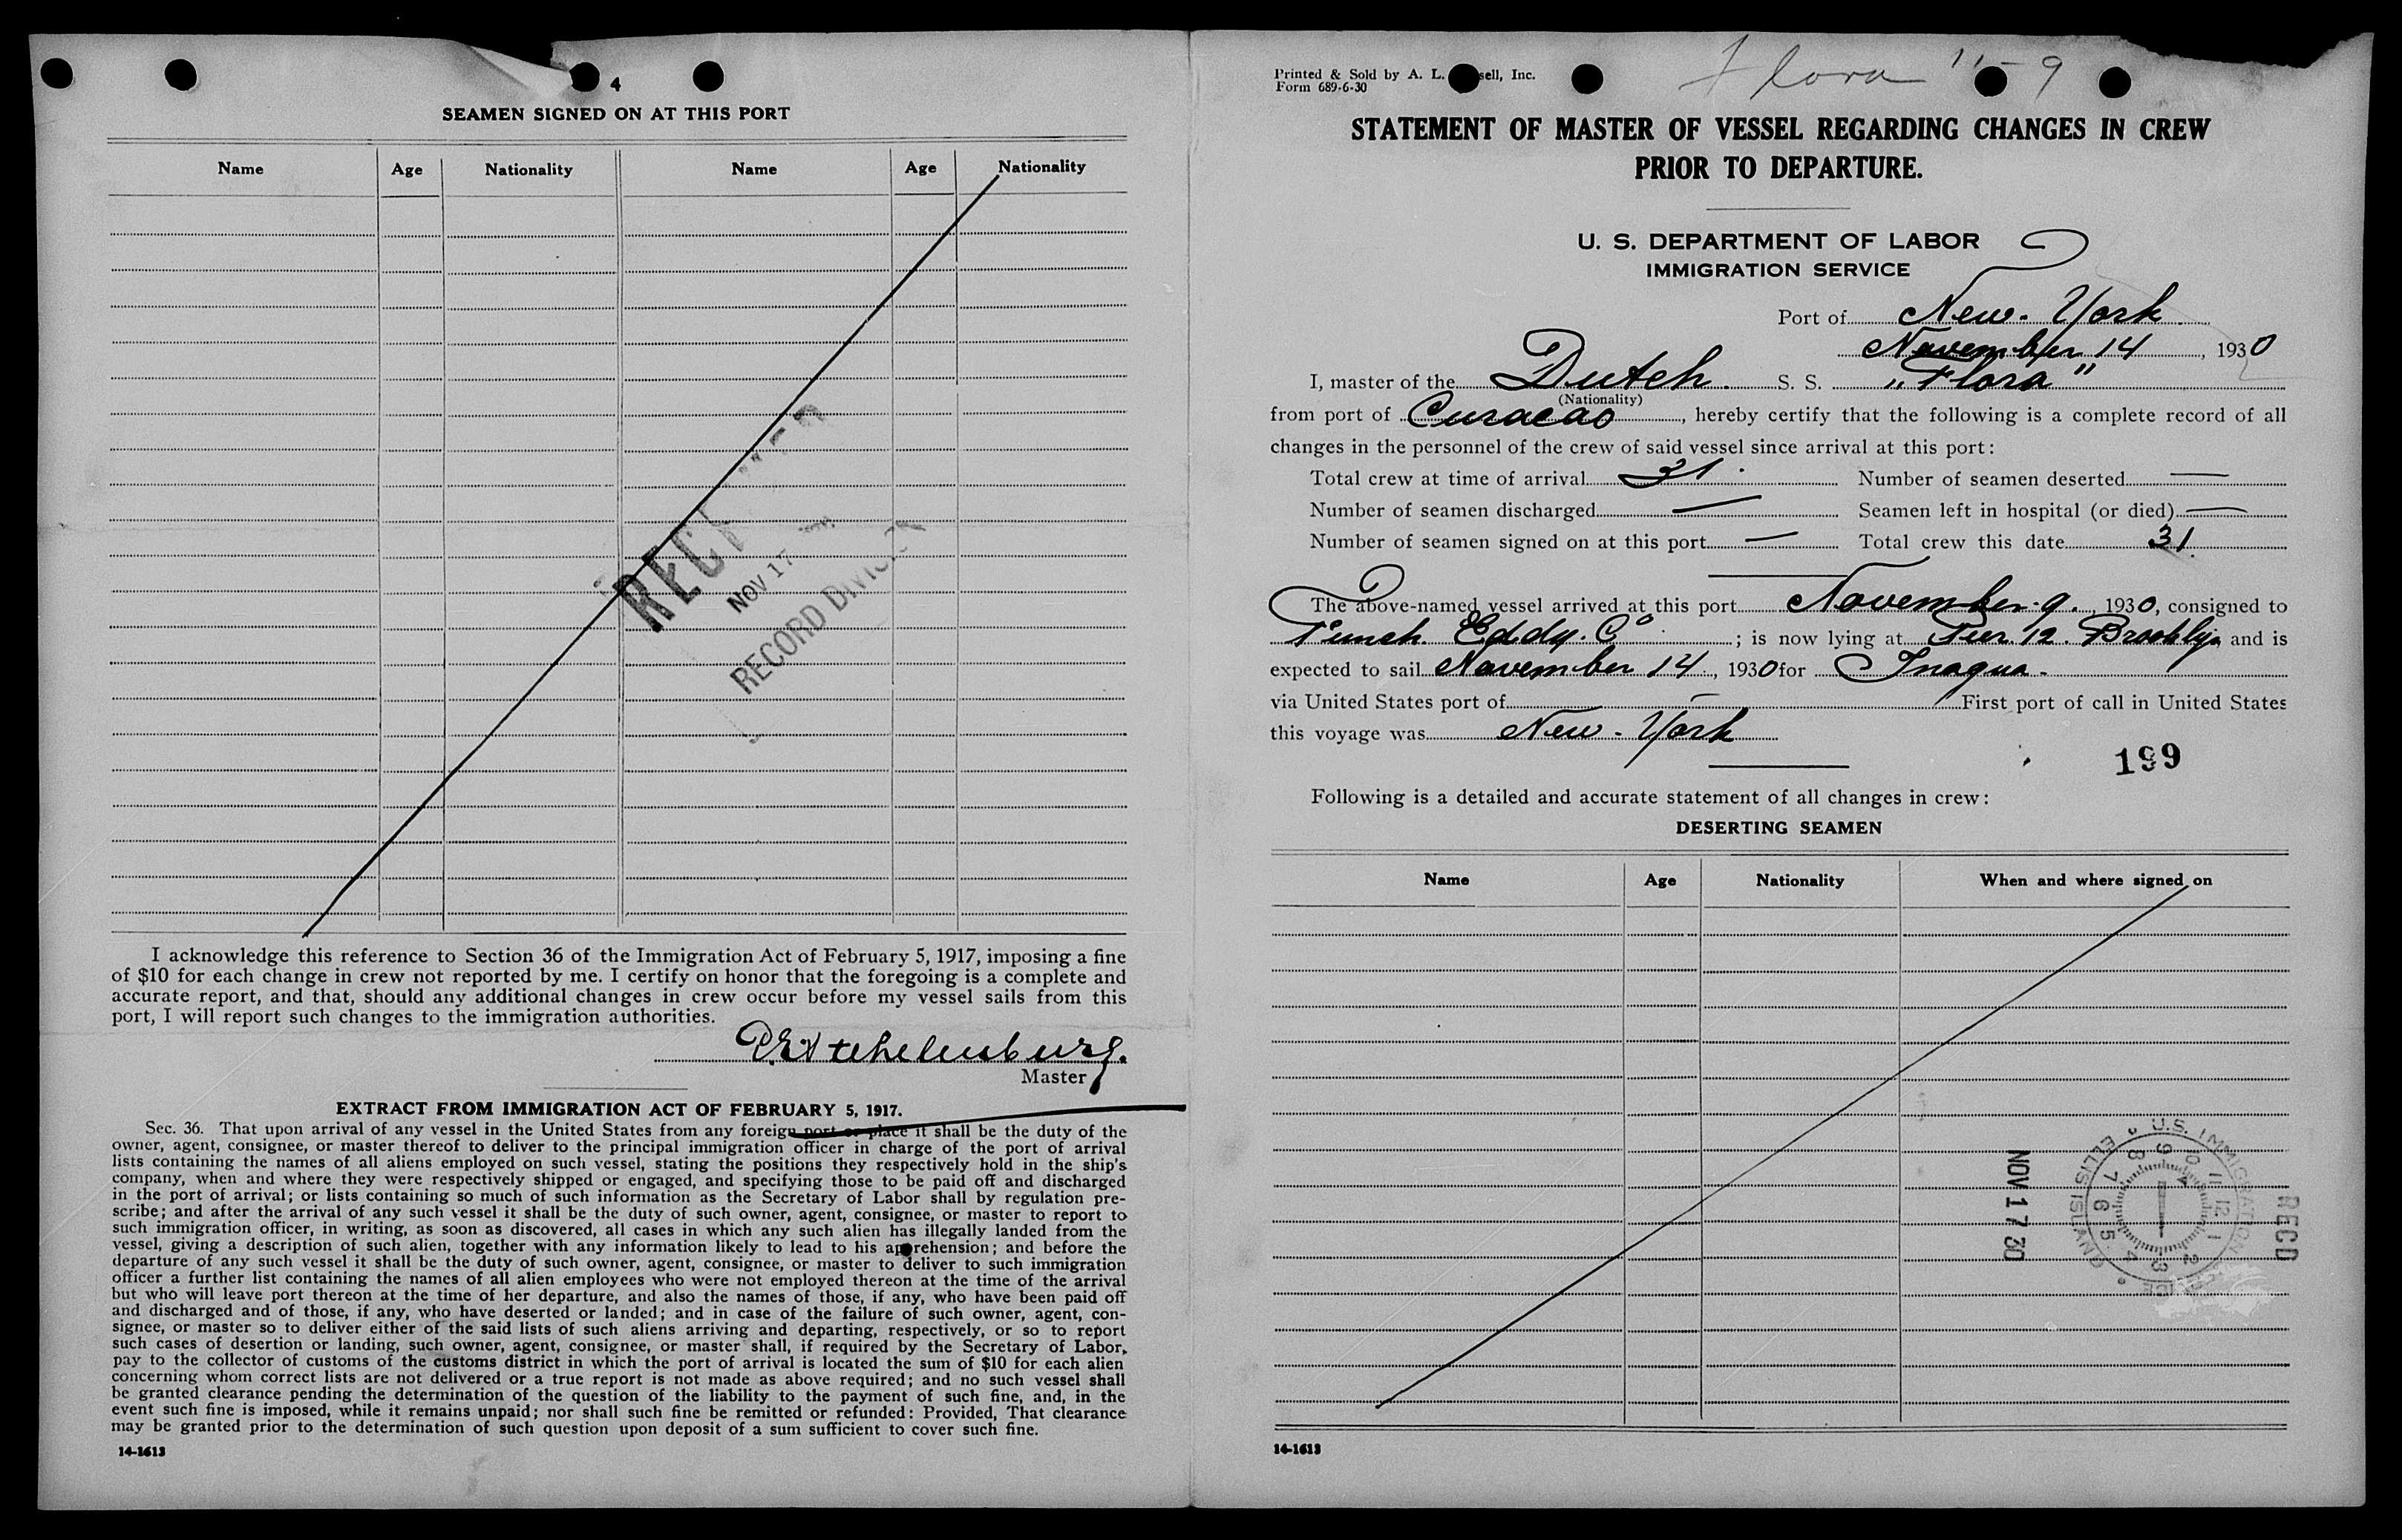 4
SEAMEN SIGNED ON AT THIS PORT
Name Age Nationality Name Age Nationality
NOV 17
RECORD DIVISION
I acknowledge this reference to Section 36 of the Immigration Act of February 5, 1917, imposing a fine
of $10 for each change in crew not reported by me. I certify on honor that the foregoing is a complete and
accurate report, and that, should any additional changes in crew occur before my vessel sails from this
port, I will report such changes to the immigration authorities.
Master
EXTRACT FROM IMMIGRATION ACT OF FEBRUARY 5, 1917.
Sec. 36. That upon arrival of any vessel in the United States from any foreign port or place it shall be the duty of the
owner, agent, consignee, or master thereof to deliver to the principal immigration officer in charge of the port of arrival
lists containing the names of all aliens employed on such vessel, stating the positions they respectively hold in the ship's
company, when and where they were respectively shipped or engaged, and specifying those to be paid off and discharged
in the port of arrival; or lists containing so much of such information as the Secretary of Labor shall by regulation pre-
scribe; and after the arrival of any such vessel it shall be the duty of such owner, agent, consignee, or master to report to
such immigration officer, in writing, as soon as discovered, all cases in which any such alien has illegally landed from the
vessel, giving a description of such alien, together with any information likely to lead to his apprehension; and before the
departure of any such vessel it shall be the duty of such owner, agent, consignee, or master to deliver to such immigration
officer a further list containing the names of all alien employees who were not employed thereon at the time of the arrival
but who will leave port thereon at the time of her departure, and also the names of those, if any, who have been paid off
and discharged and of those, if any, who have deserted or landed; and in case of the failure of such owner, agent, con-
signee, or master so to deliver either of the said lists of such aliens arriving and departing, respectively, or so to report
such cases of desertion or landing, such owner, agent, consignee, or master shall, if required by the Secretary of Labor,
pay to the collector of customs of the customs district in which the port of arrival is located the sum of $10 for each alien
concerning whom correct lists are not delivered or a true report is not made as above required; and no such vessel shall
be granted clearance pending the determination of the question of the liability to the payment of such fine, and, in the
event such fine is imposed, while it remains unpaid; nor shall such fine be remitted or refunded: Provided, That clearance
may be granted prior to the determination of such question upon deposit of a sum sufficient to cover such fine.
14-1613
Flora 11-9
Printed & Sold by A. L. sell, Inc.
Form 689-6-30
STATEMENT OF MASTER OF VESSEL REGARDING CHANGES IN CREW
PRIOR TO DEPARTURE.
U. S. DEPARTMENT OF LABOR
IMMIGRATION SERVICE
Port of New-York
November 14, 1930
I, master of the Dutch. S. S. "Flora"
(Nationality)
from port of Curacao, hereby certify that the following is a complete record of all
changes in the personnel of the crew of said vessel since arrival at this port:
Total crew at time of arrival 31. Number of seamen deserted —
Number of seamen discharged — Seamen left in hospital (or died) —
Number of seamen signed on at this port — Total crew this date 31.
The above-named vessel arrived at this port November 9., 1930, consigned to
Funch Eddy. Co; is now lying at Pier 12. Brooklyn and is
expected to sail November 14., 1930 for Inagua-
via United States port of — First port of call in United States
this voyage was New-York
199
Following is a detailed and accurate statement of all changes in crew:
DESERTING SEAMEN
Name Age Nationality When and where signed on
RECD
U.S. IMMIGRATION
ELLIS ISLAND
12 1 2 3 4 5 6 7 8 9 10 11
NOV 17 30
14-1613